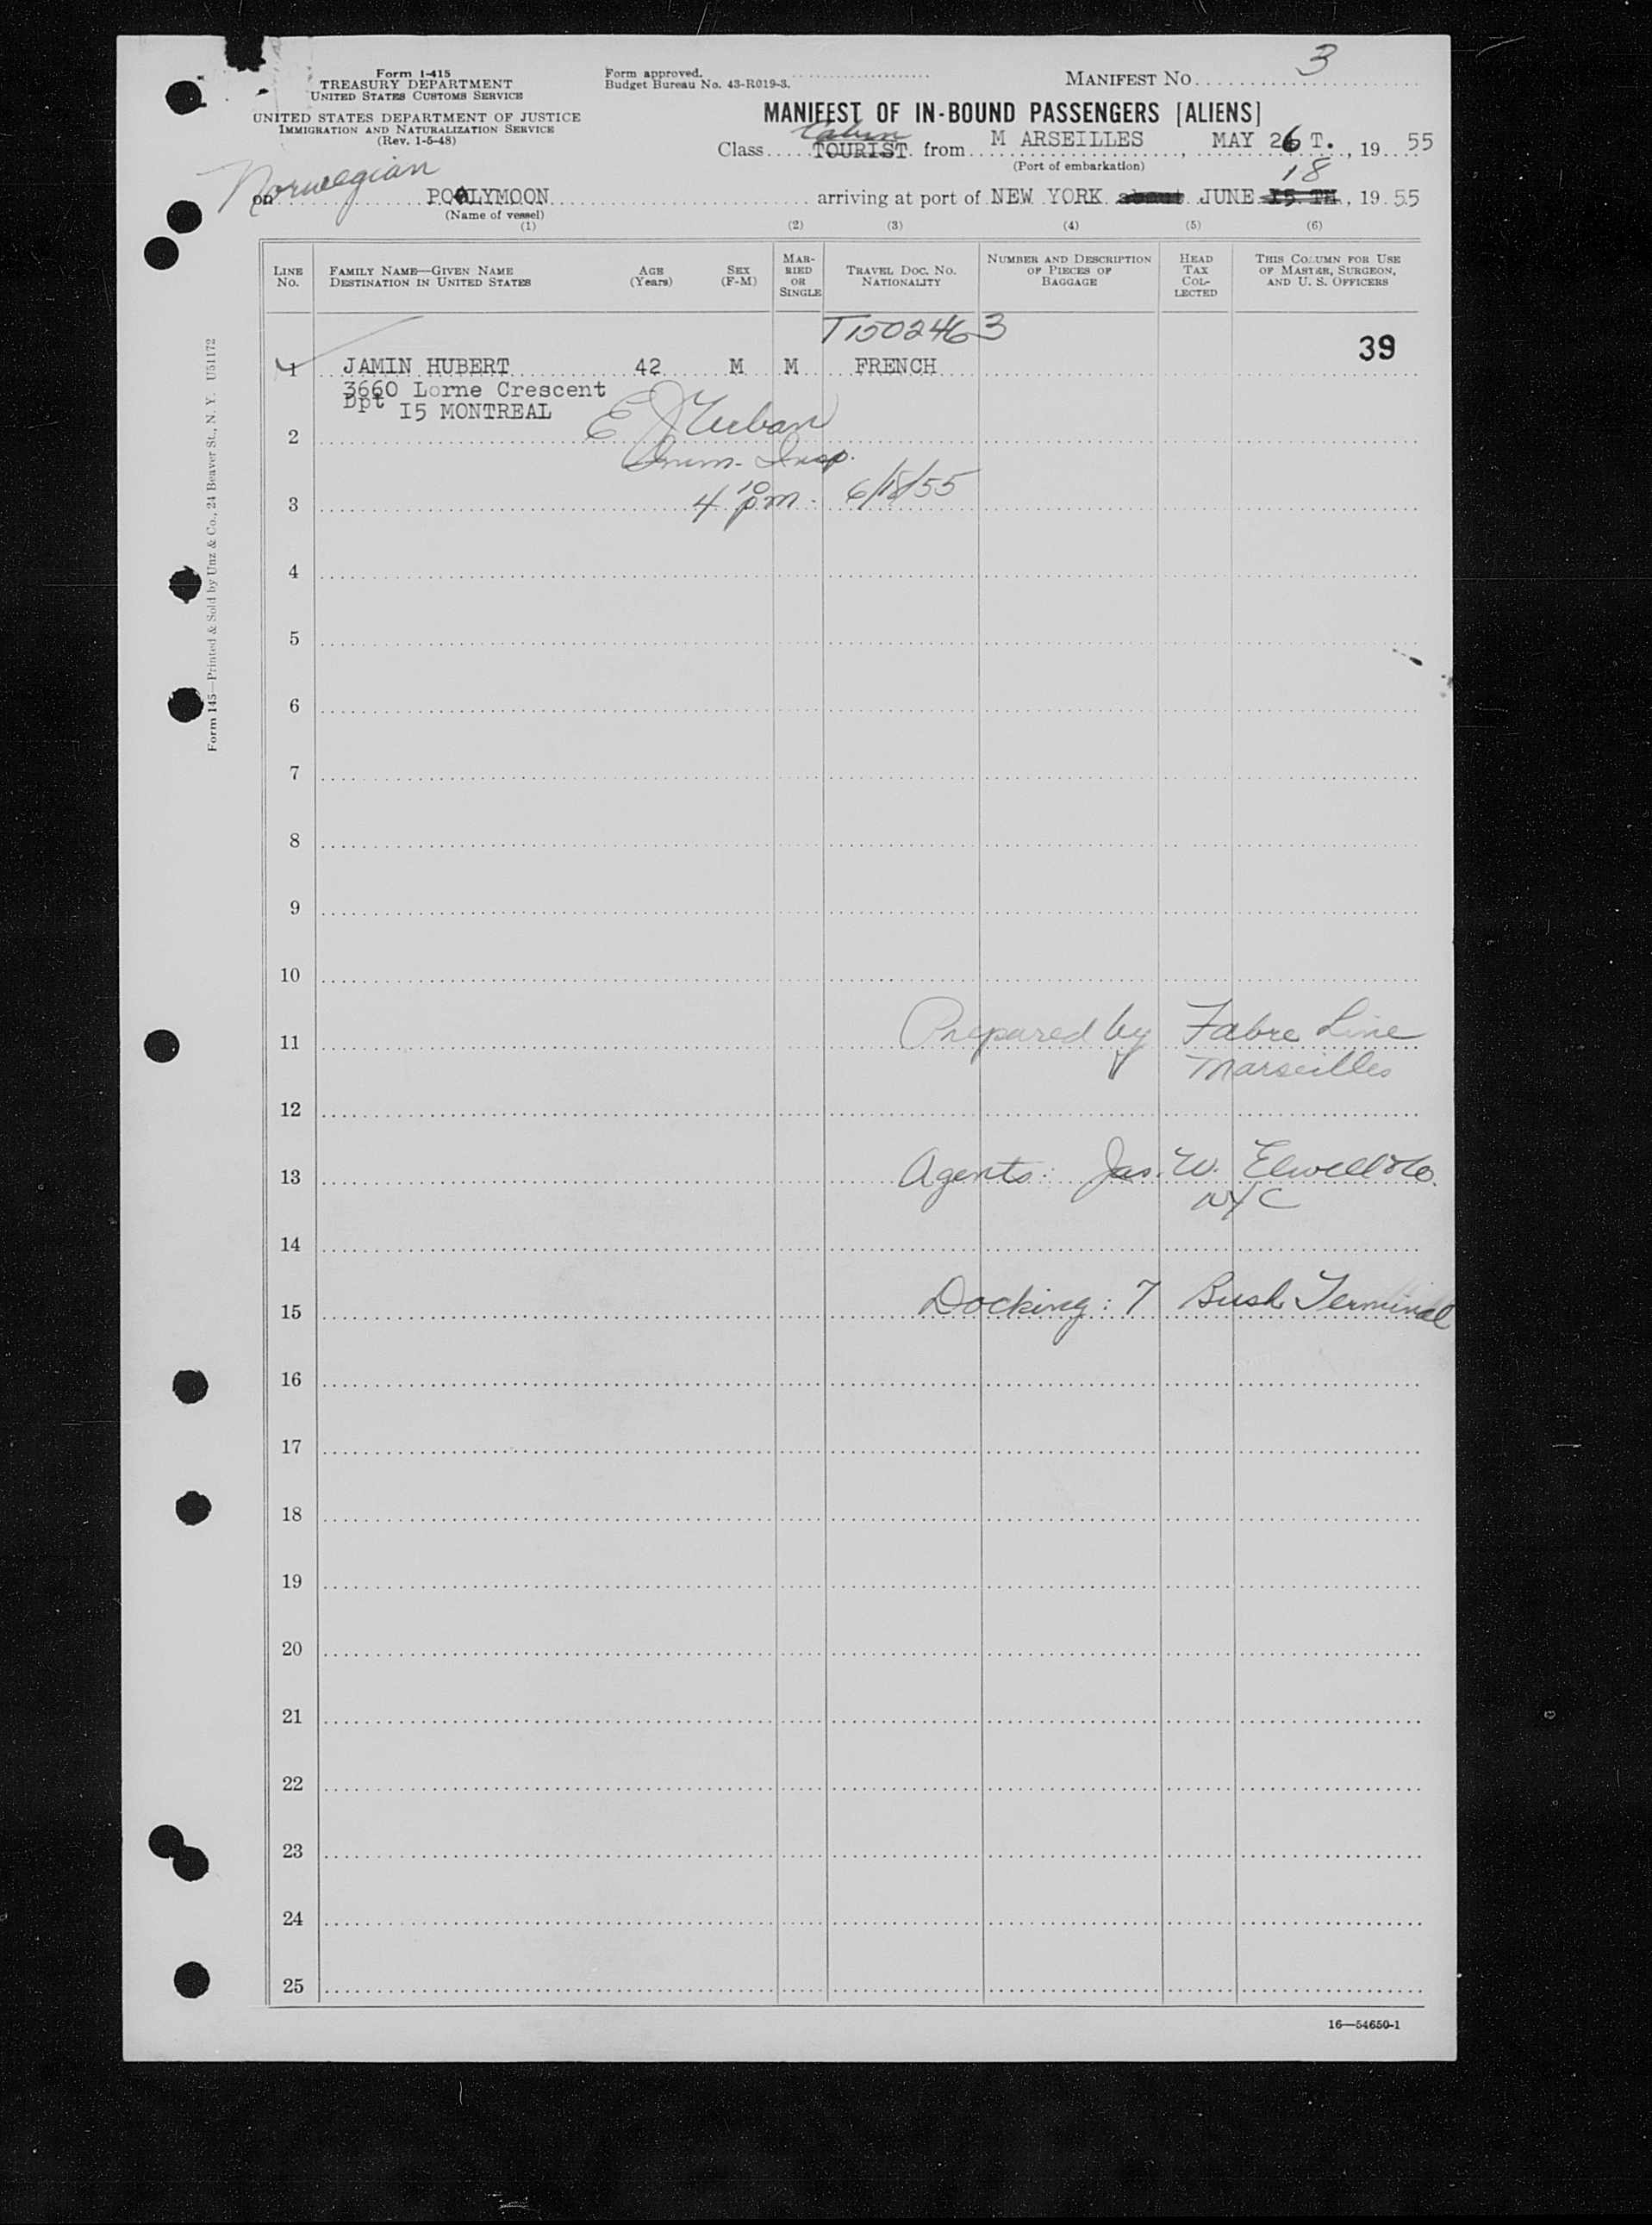 Form I-415
TREASURY DEPARTMENT
UNITED STATES CUSTOMS SERVICE
UNITED STATES DEPARTMENT OF JUSTICE
IMMIGRATION AND NATURALIZATION SERVICE
(Rev. 1-5-48)
Form approved.
Budget Bureau No. 43-R019-3.
MANIFEST NO. 3
MANIFEST OF IN-BOUND PASSENGERS [ALIENS]
Cabin
Class TOURIST from M ARSEILLES, MAY 26 T., 19 55
(Port of embarkation)
Norwegian
18
on POLYMOON arriving at port of NEW YORK about JUNE 15 TH, 19 55
(Name of vessel)
(1) (2) (3) (4) (5) (6)
LINE NO. FAMILY NAME—GIVEN NAME DESTINATION IN UNITED STATES AGE (Years) SEX (F-M) MAR-RIED OR SINGLE TRAVEL DOC. NO. NATIONALITY NUMBER AND DESCRIPTION OF PIECES OF BAGGAGE HEAD TAX COL-LECTED THIS COLUMN FOR USE OF MASTER, SURGEON, AND U. S. OFFICERS
T1502463
39
1 JAMIN HUBERT 42 M M FRENCH
3660 Lorne Crescent
Dpt I5 MONTREAL
E J Urban
2
Imm. Insp.
3 4 10 pm. 6/18/55
4
5
6
7
8
9
10
11 Prepared by Fabre Line
Marseilles
12
13 Agents: Jas. W. Elwell & Co.
NYC
14
15 Docking: 7 Bush Terminal
16
17
18
19
20
21
22
23
24
25
16—54650-1
Form 145—Printed & Sold by Unz & Co., 24 Beaver St., N. Y. U51172